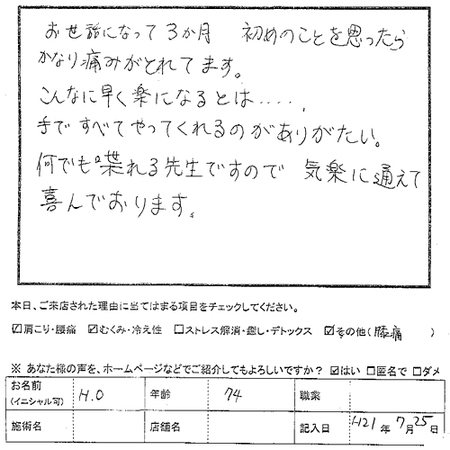 お世話になって3か月 初めのことを思ったら
かなり痛みがとれてます。
こんなに早く楽になるとは‥‥、
手ですべてやってくれるのがありがたい。
何でも れる先生ですので 気楽に通えて
喜んでおります。
本日、ご来店された理由に当てはまる項目をチェックしてください。
☑肩こり・腰痛 ☑むくみ・冷え性 □ストレス解消・癒し・デトックス ☑その他(膝痛 )
※ あなた様の声を、ホームページなどでご紹介してもよろしいですか? ☑はい □匿名で □ダメ
お名前 (イニシャル可) H.O 年齢 74 職業
施術名 店舗名 記入日 H21年 7月25日